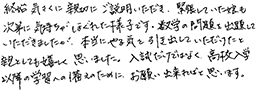 終始 気さくに 親切に ご説明いただき、緊張していた娘も
次第に 気持ちが ほぐれた 様子です。数学の問題を出題して
いただきましたが、本当に やる気を 引き出していただけたと
親としても 嬉しく 思いました。入試だけではなく、高校入学
以降の学習への備えのために、お願い出来ればと 思います。